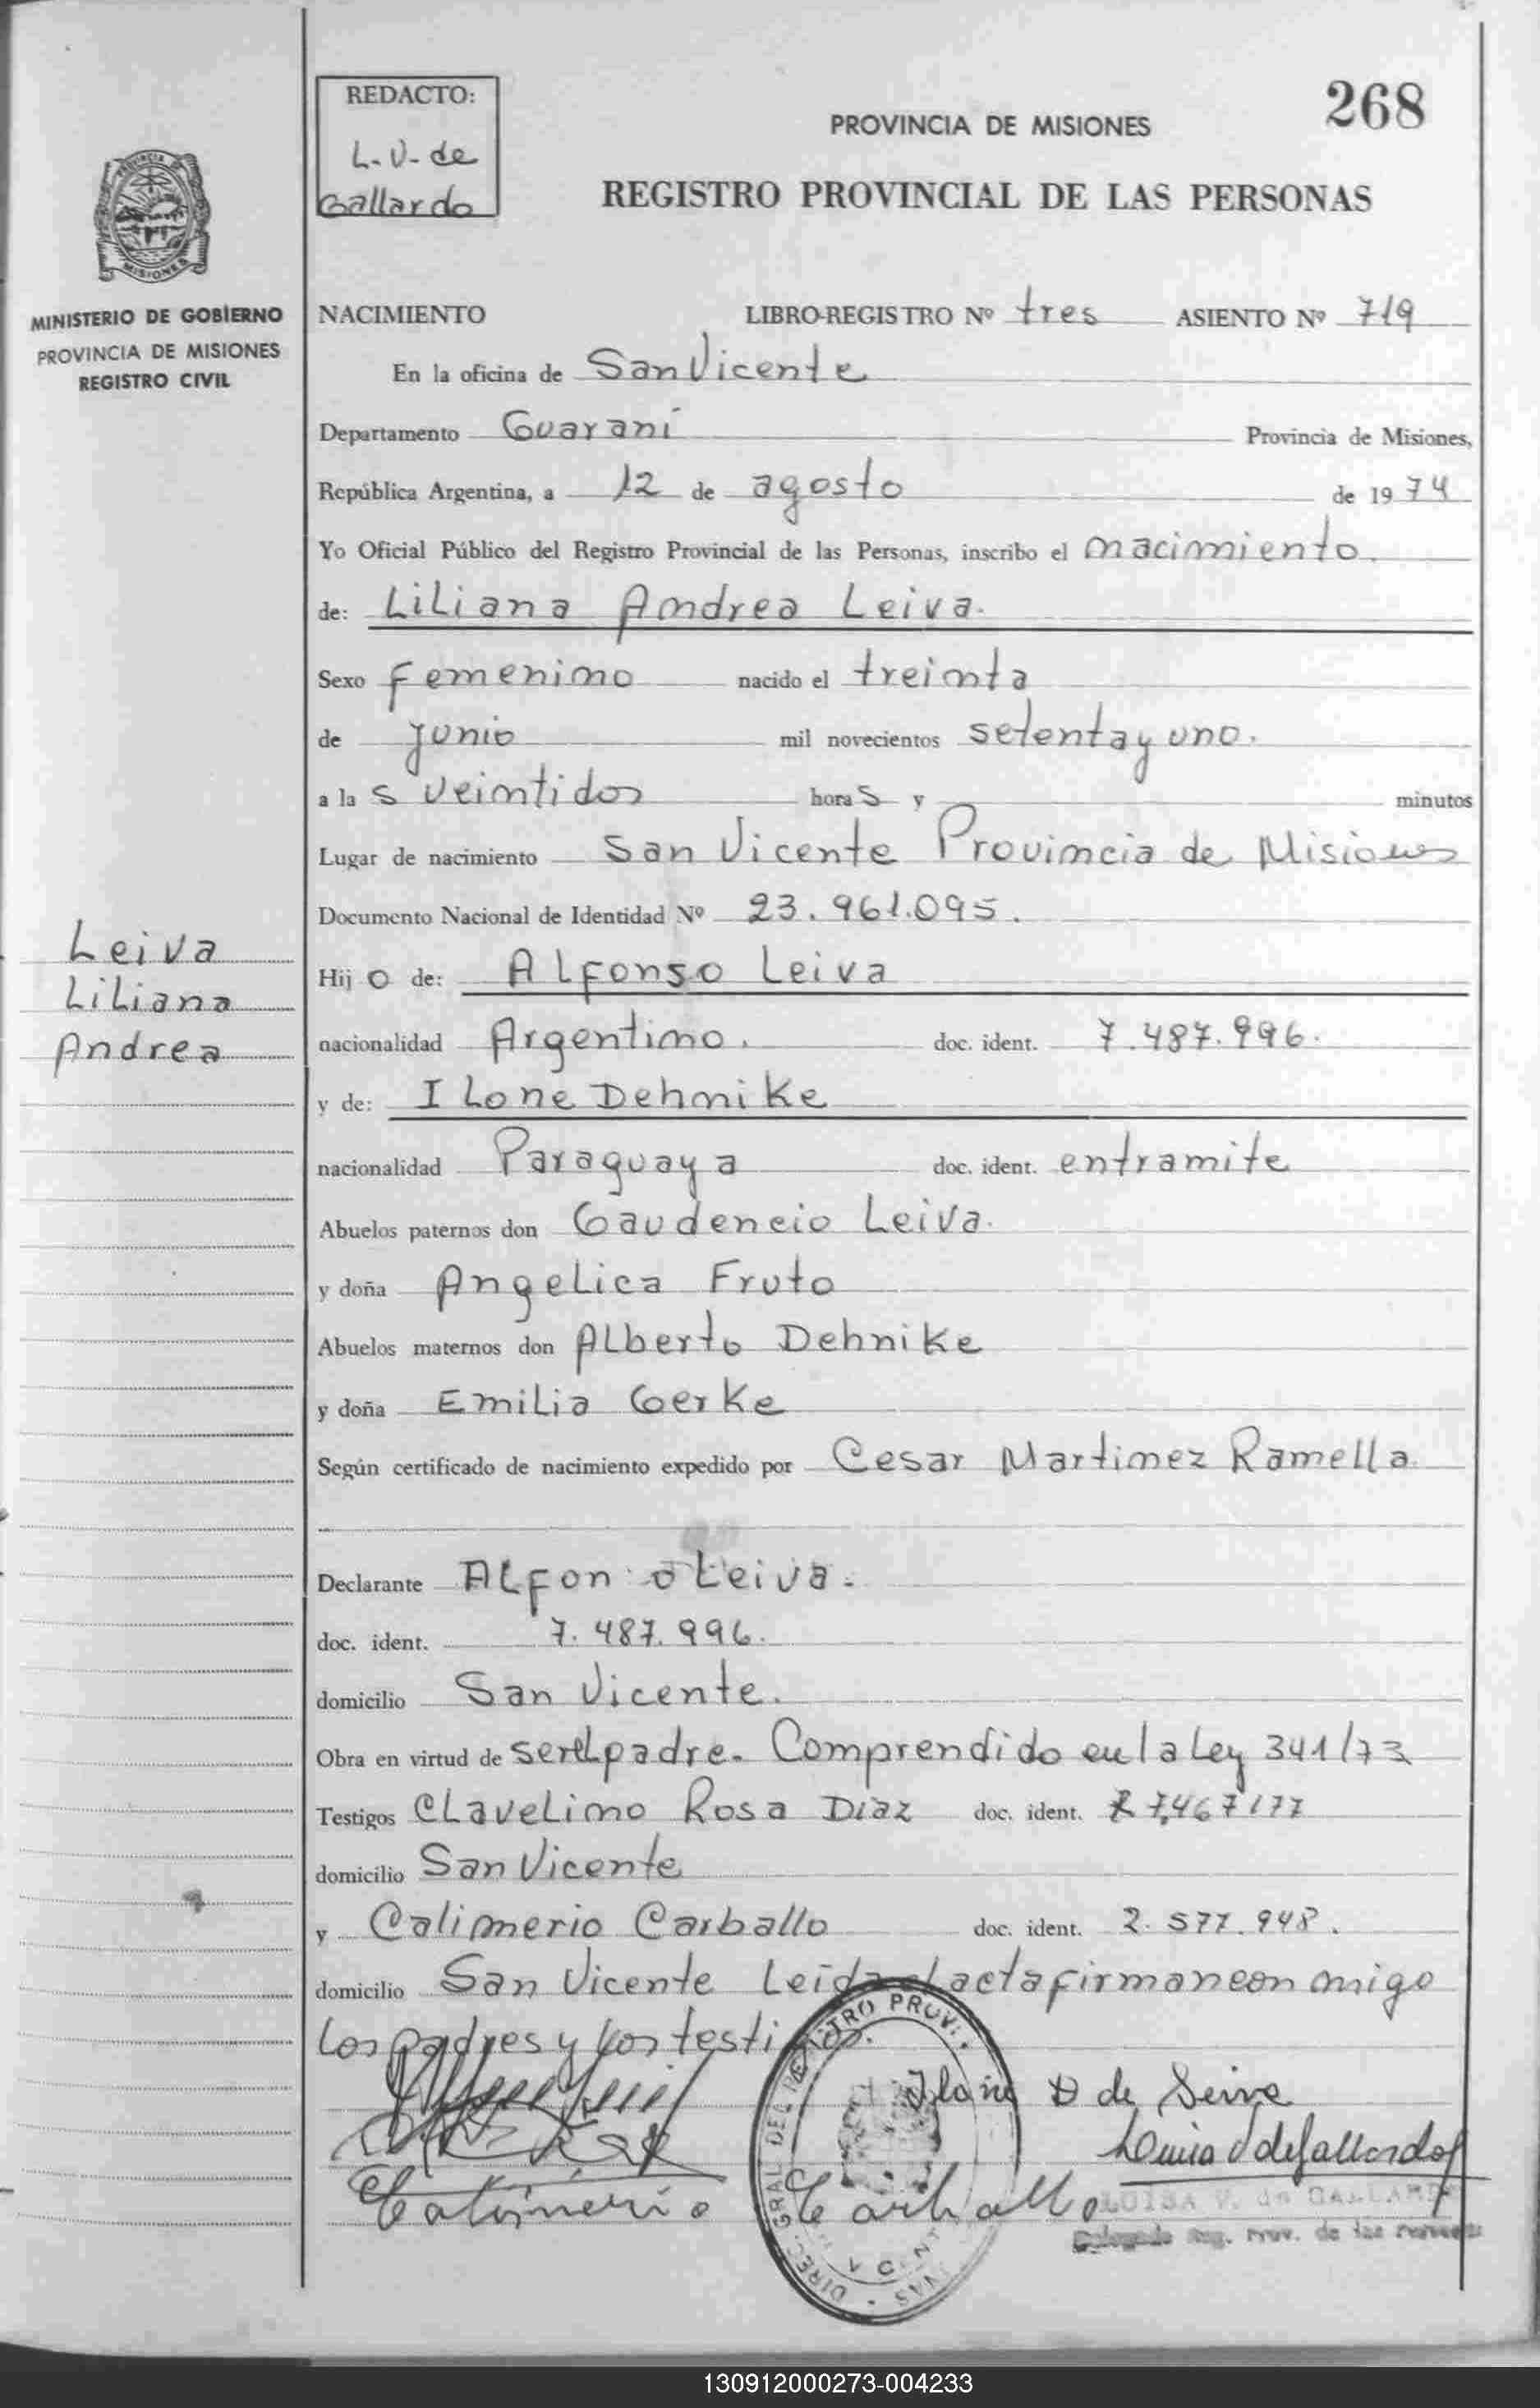 268
REDACTO:
L. V. de
Gallardo
PROVINCIA DE MISIONES
REGISTRO PROVINCIAL DE LAS PERSONAS
PROVINCIA
MISIONES
MINISTERIO DE GOBIERNO
PROVINCIA DE MISIONES
REGISTRO CIVIL
NACIMIENTO LIBRO-REGISTRO Nº tres ASIENTO Nº 719
En la oficina de San Vicente
Departamento Guaraní Provincia de Misiones,
República Argentina, a 12 de agosto de 1974
Yo Oficial Público del Registro Provincial de las Personas, inscribo el nacimiento
de: Liliana Andrea Leiva.
Sexo femenino nacido el treinta
de junio mil novecientos setenta y uno.
a la s veintidos hora s y minutos
Lugar de nacimiento San Vicente Provincia de Misiones
Documento Nacional de Identidad Nº 23.961.095.
Leiva
Liliana
Andrea
Hij o de: Alfonso Leiva
nacionalidad Argentino. doc. ident. 7.487.996.
y de: Ilone Dehnike
nacionalidad Paraguaya doc. ident. entramite
Abuelos paternos don Gaudencio Leiva.
y doña Angelica Fruto
Abuelos maternos don Alberto Dehnike
y doña Emilia Gerke
Según certificado de nacimiento expedido por Cesar Martinez Ramella
Declarante Alfon o Leiva.
doc. ident. 7.487.996.
domicilio San Vicente.
Obra en virtud de ser el padre. Comprendido en la Ley 341/73
Testigos Clavelino Rosa Diaz doc. ident. 7,467177
domicilio San Vicente
y Calimerio Carballo doc. ident. 2.577.948.
domicilio San Vicente Leida el acta firman con migo
los padres y los testi
Ilone D de Leiva
Luisa V de Gallardo
Calimerio Carballo
LUISA V. de GALLARDO
Delegada Reg. Prov. de las Personas
DIREC. GRAL. DEL REGISTRO PROV.
130912000273-004233